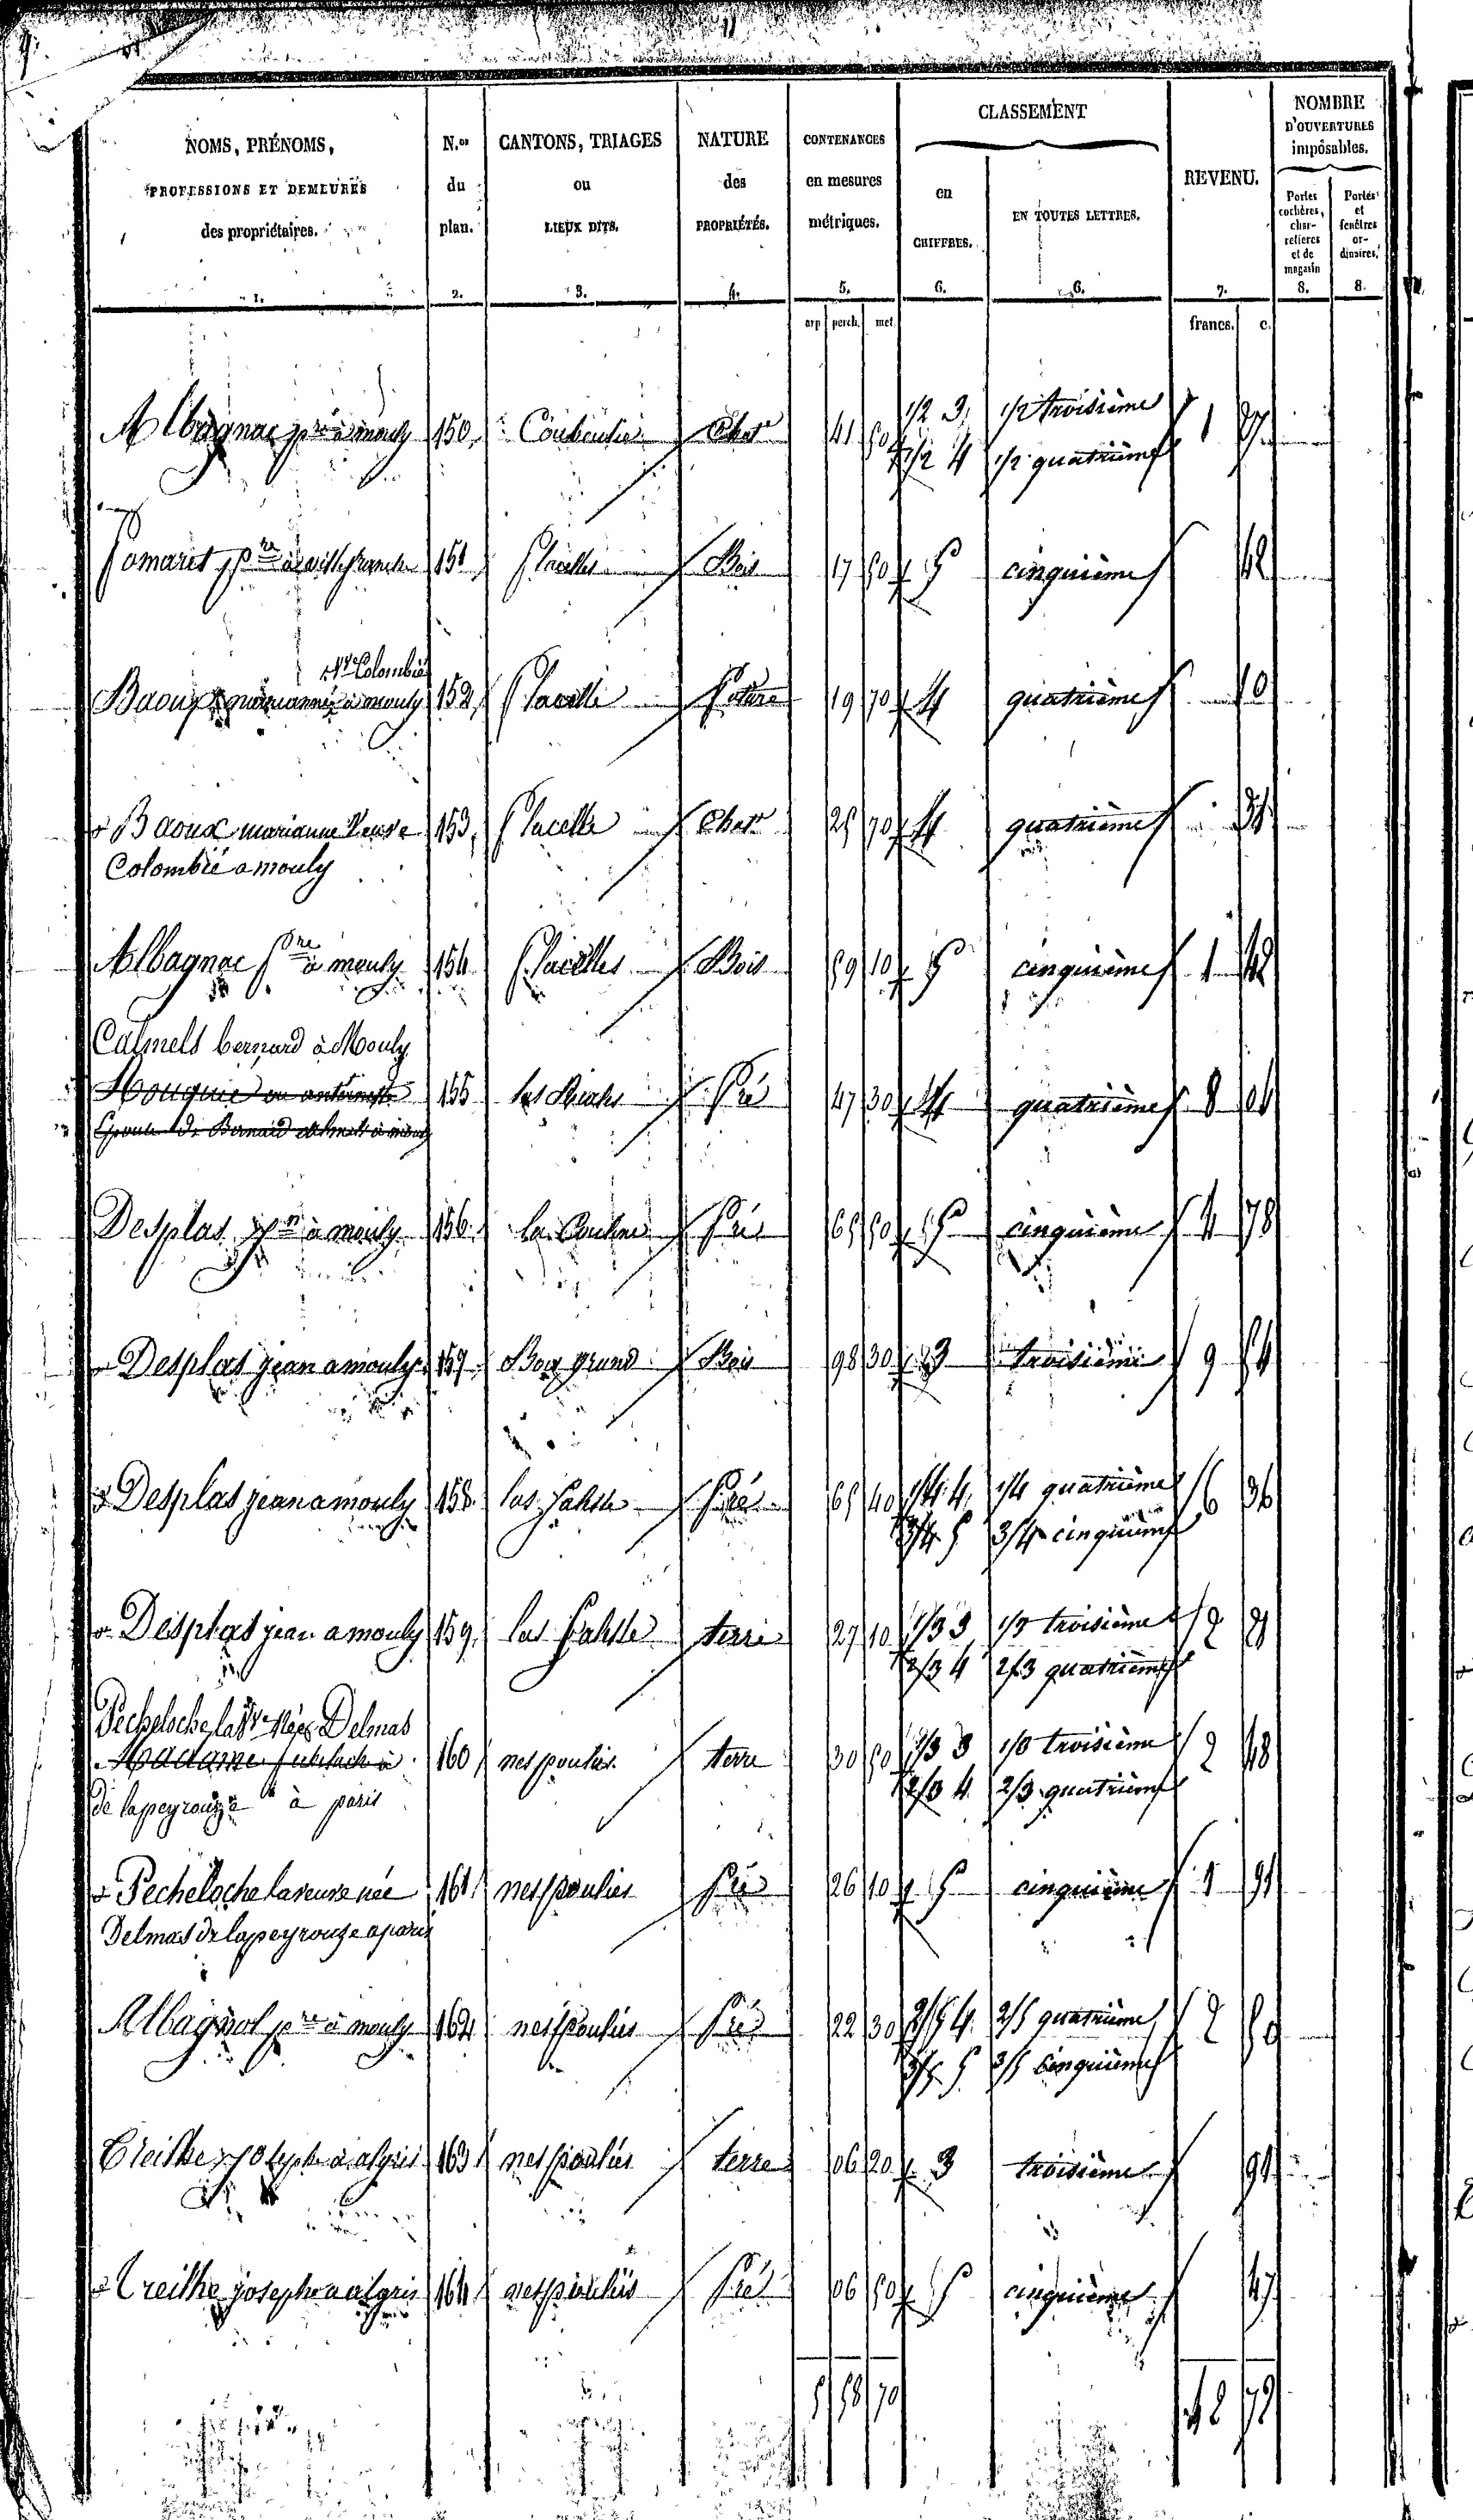 NOMS, PRÉNOMS,
PROFESSIONS ET DEMEURES
des propriétaires.
1.
N.os
du
plan.
2.
CANTONS, TRIAGES
ou
LIEUX DITS.
3.
NATURE
des
PROPRIÉTÉS.
4.
CONTENANCES
en mesures
métriques.
5.
CLASSEMENT
en
CHIFFRES.
6.
EN TOUTES LETTRES.
6.
REVENU.
7.
NOMBRE
D'OUVERTURES
imposables.
Portes
cochères,
char-
retieres
et de
magasin
8.
Portes
et
fenêtres
or-
dinaires.
8.
arp perch. met. francs. c.
Albagnac pre à mouly 150 41 50 1/2 3 1/2 troisième 1
1/2 4 1/2 quatrième
pre à villefranche 151 Bois 17 50 5 cinquième 42
Ve Colombié
Baoux marianne à mouly 152 Placelle Pature 19 70 4 quatrième 10
Baoux marianne Veuve 153 Placelle 25 70 4 quatrième
Colombié a mouly
Albagnac pre à mouly 154 Placelles Bois 59 10 5 cinquième 1 42
Calmels bernard à Mouly
155 Pré 47 30 4 quatrième 8 04
Epouse de Bernard Calmels à mouly
Desplas jn à mouly 156 Pré 65 50 5 cinquième 4 78
Desplas jean a mouly 157 Bois grand Bois 98 30 3 troisième 9 54
Desplas jean a mouly 158 Pré 65 40 1/4 4 1/4 quatrième 6 36
3/4 5 3/4 cinquième
Desplas jean a mouly 159 terre 27 10 1/3 3 1/3 troisième 2 21
2/3 4 2/3 quatrième
Pecheloche la Ve née Delmas
Madame à 160 nespouliés terre 30 50 1/3 3 1/3 troisième 2 48
de lapeyrouze à paris 2/3 4 2/3 quatrième
Pecheloche la veuve née 161 nespouliés Pré 26 10 5 cinquième 1 91
Delmas de lapeyrouze a paris
Albagnol pre à mouly 162 nespouliés Pré 22 30 2/5 4 2/5 quatrième 2 50
3/5 5 3/5 cinquième
Treilhe joseph à algris 163 nespouliés terre 06 20 3 troisième 91
Treilhe joseph a algris 164 nespouliés Pré 06 50 5 cinquième 47
5 58 70 42 72